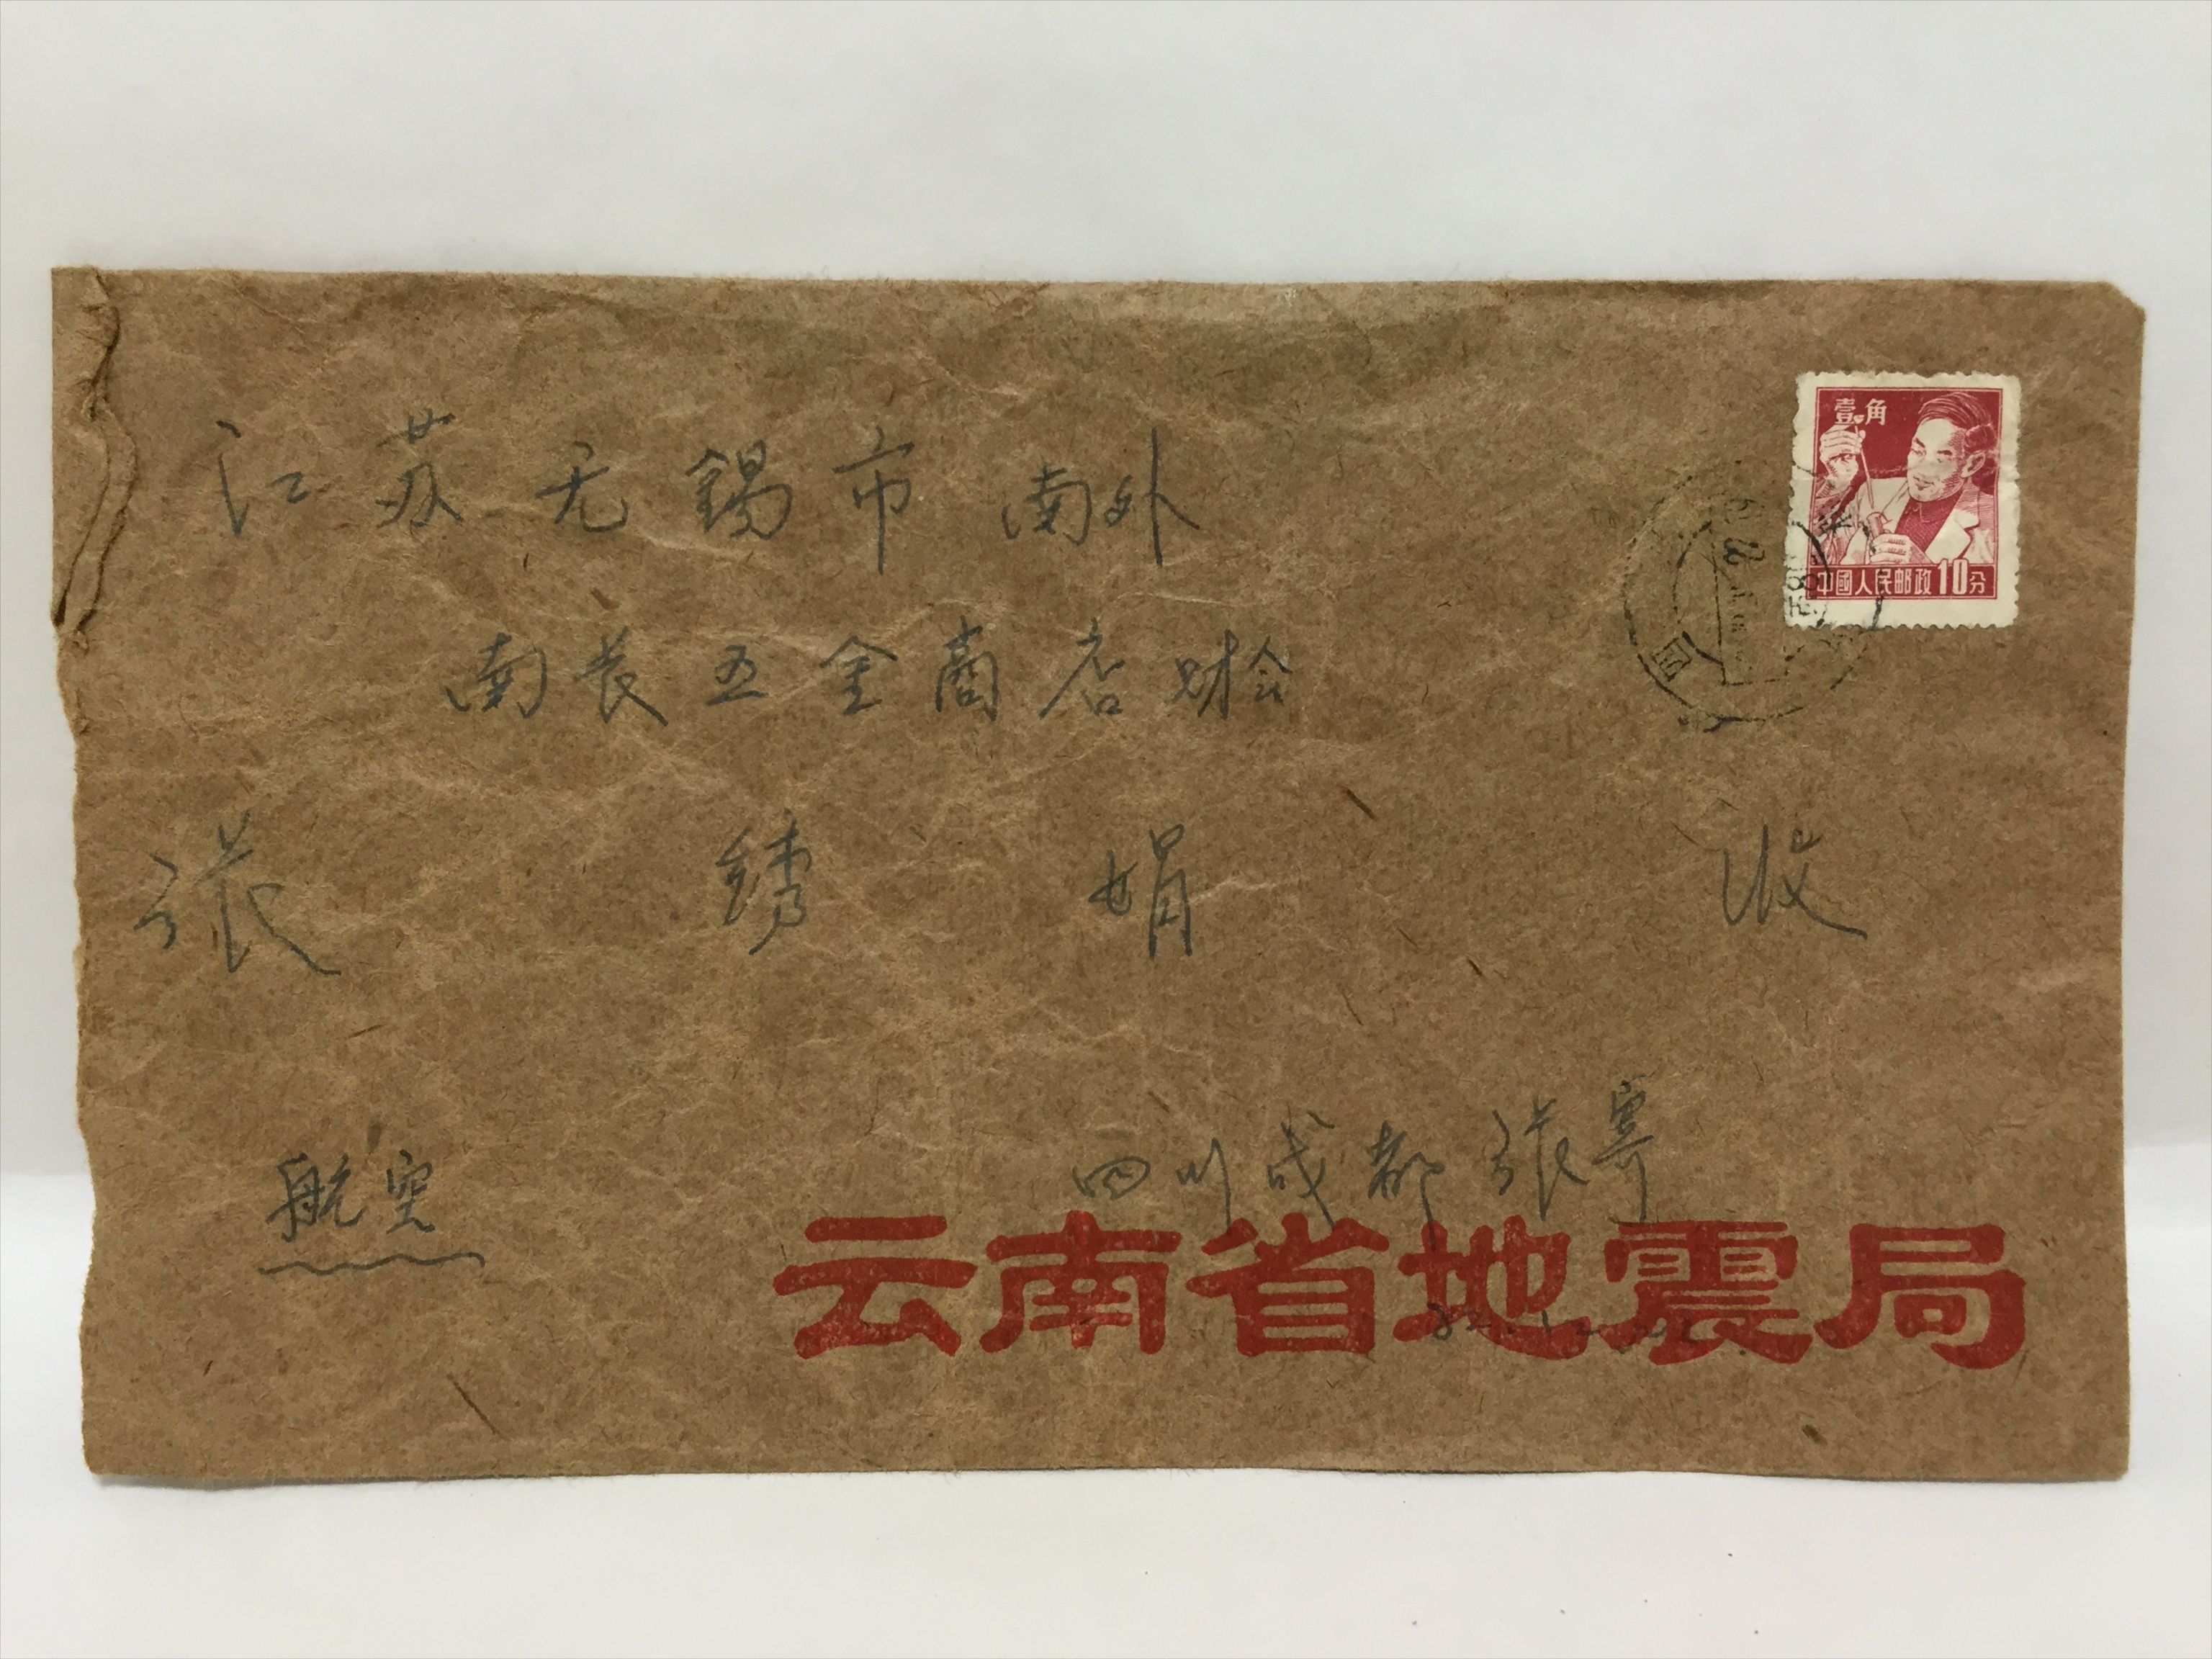 壹角
中國人民邮政10分
江苏无锡市南外
南长五金商店财会
张绣娟 收
航空
四川成都张寄
云南省地震局